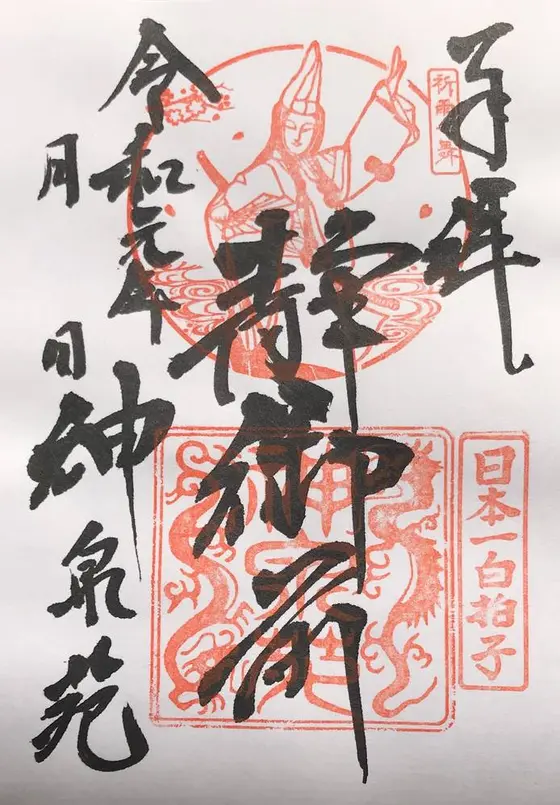 奉拝
祈雨 舞
日本一白拍子
静御前
神泉苑
令和元年
月 日
神泉苑